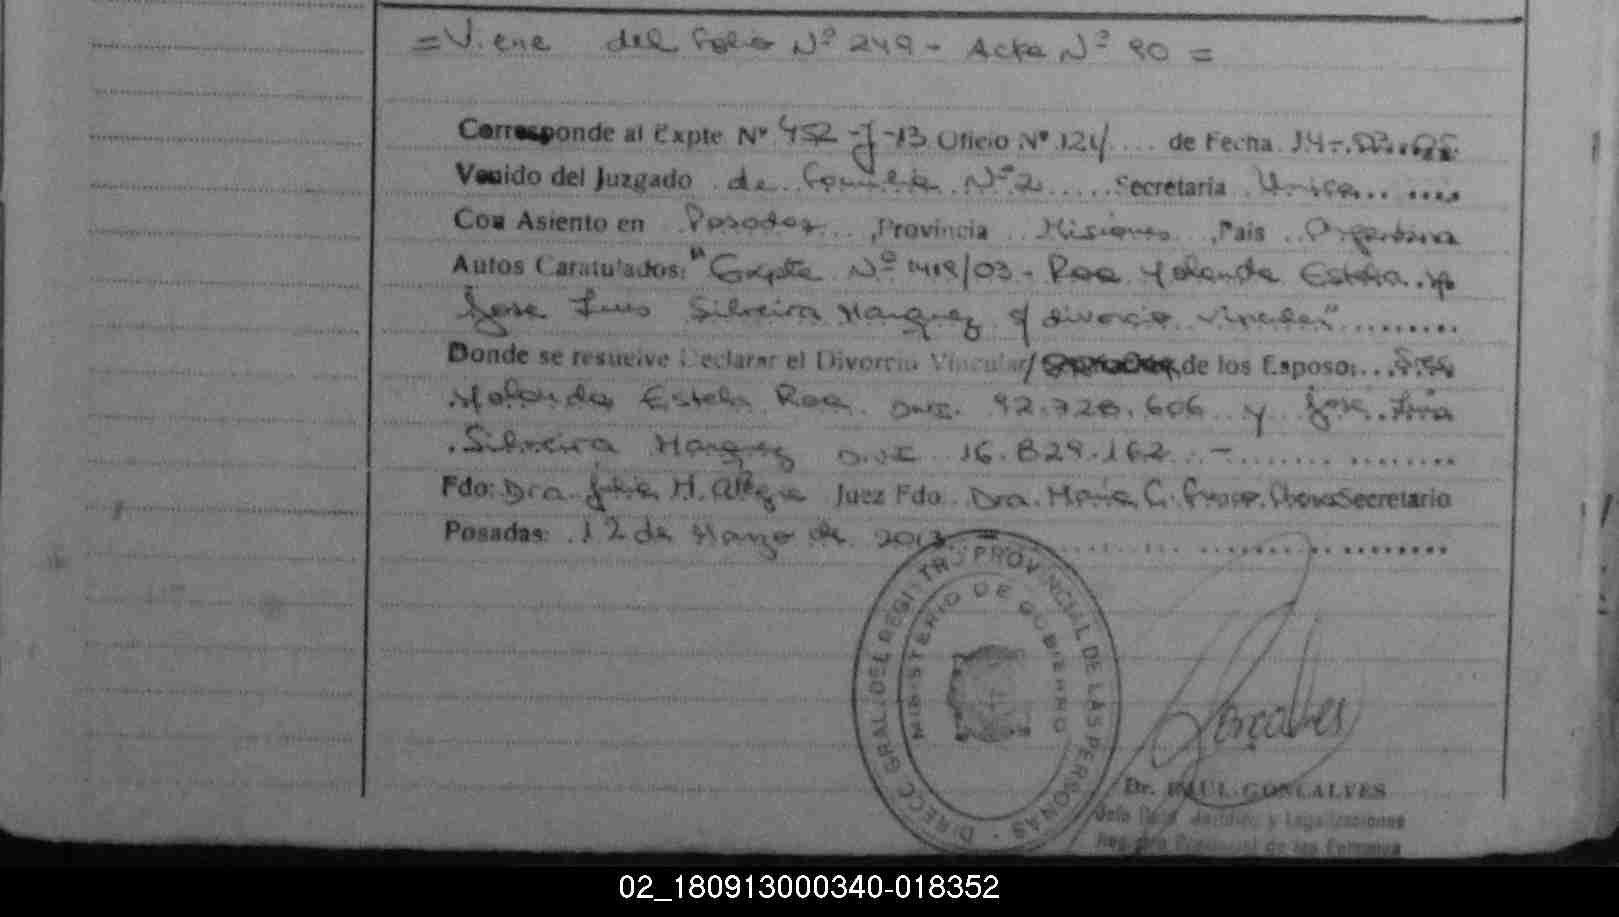 = Viene del folio Nº 249 - Acta Nº 90 =
Corresponde al Expte Nº 452-J-13 Oficio Nº 121/.... de Fecha 14-
Venido del Juzgado de Familia Nº 2 ..... Secretaria Unica
Con Asiento en Posadas ..., Provincia Misiones, Pais Argentina
Autos Caratulados: "Expte Nº 1419/03 - Roa Yolanda Estela
Jose Luis Silveira Marquez s/ divorcio vincular"
Donde se resuelve Declarar el Divorcio Vincular/ de los Esposo: Sres
Yolanda Estela Roa DNI. 92.728.606 y Jose Luis
Silveira Marquez D.N.I 16.829.162.-
Fdo: Dra. Julia H. Alegre Juez Fdo Dra. Maria C. Secretario
Posadas: 12 de Marzo de 2013 =
DIRECC GRAL. DEL REGISTRO PROVINCIAL DE LAS PERSONAS
MINISTERIO DE GOBIERNO
Goncalves
Dr. RAUL GONCALVES
Jefe Dpto. Jurídico y Legalizaciones
Registro Provincial de las Personas
02_180913000340-018352